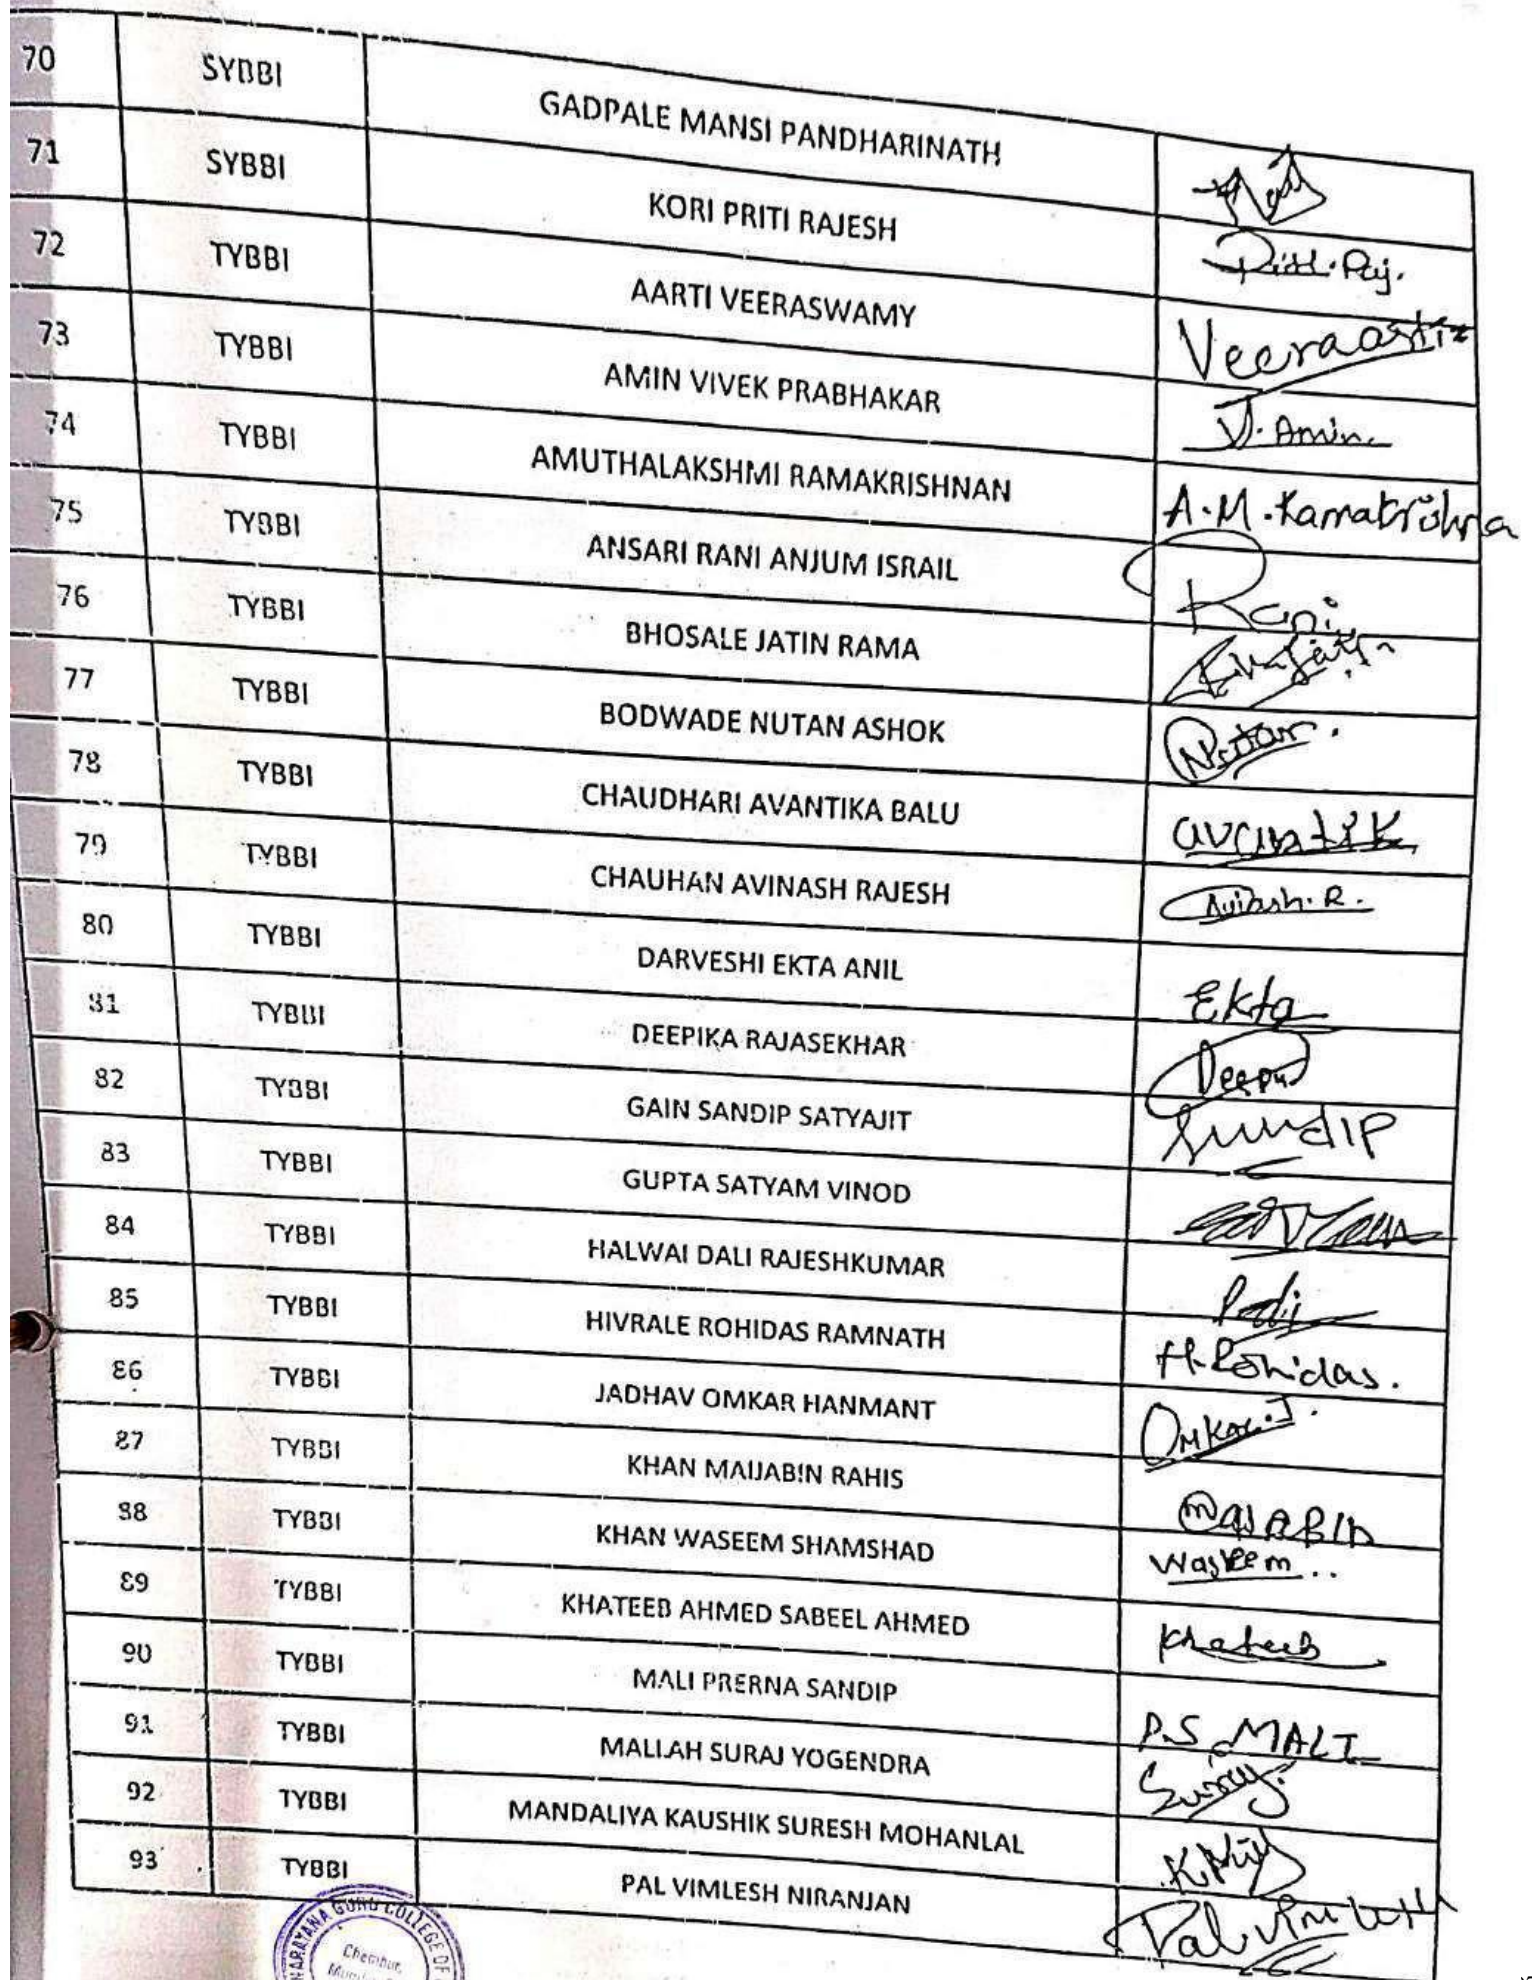 70 SYBBI GADPALE MANSI PANDHARINATH
71 SYBBI KORI PRITI RAJESH
72 TYBBI AARTI VEERASWAMY Veeraarti
73 TYBBI AMIN VIVEK PRABHAKAR V. Amin
74 TYBBI AMUTHALAKSHMI RAMAKRISHNAN A.M.Ramakrishna
75 TYBBI ANSARI RANI ANJUM ISRAIL Rani
76 TYBBI BHOSALE JATIN RAMA
77 TYBBI BODWADE NUTAN ASHOK Nutan.
78 TYBBI CHAUDHARI AVANTIKA BALU avantik
79 TYBBI CHAUHAN AVINASH RAJESH Avinash.R.
80 TYBBI DARVESHI EKTA ANIL Ekta
81 TYBBI DEEPIKA RAJASEKHAR
82 TYBBI GAIN SANDIP SATYAJIT Sandip
83 TYBBI GUPTA SATYAM VINOD
84 TYBBI HALWAI DALI RAJESHKUMAR
85 TYBBI HIVRALE ROHIDAS RAMNATH H.Rohidas.
86 TYBBI JADHAV OMKAR HANMANT Omkar.J.
87 TYBBI KHAN MAIJABIN RAHIS
88 TYBBI KHAN WASEEM SHAMSHAD Waseem..
89 TYBBI KHATEEB AHMED SABEEL AHMED Khateeb
90 TYBBI MALI PRERNA SANDIP P.S. MALI
91 TYBBI MALLAH SURAJ YOGENDRA Suraj
92 TYBBI MANDALIYA KAUSHIK SURESH MOHANLAL
93 TYBBI PAL VIMLESH NIRANJAN Pal
NARAYANA GURU COLLEGE OF
Chembur,